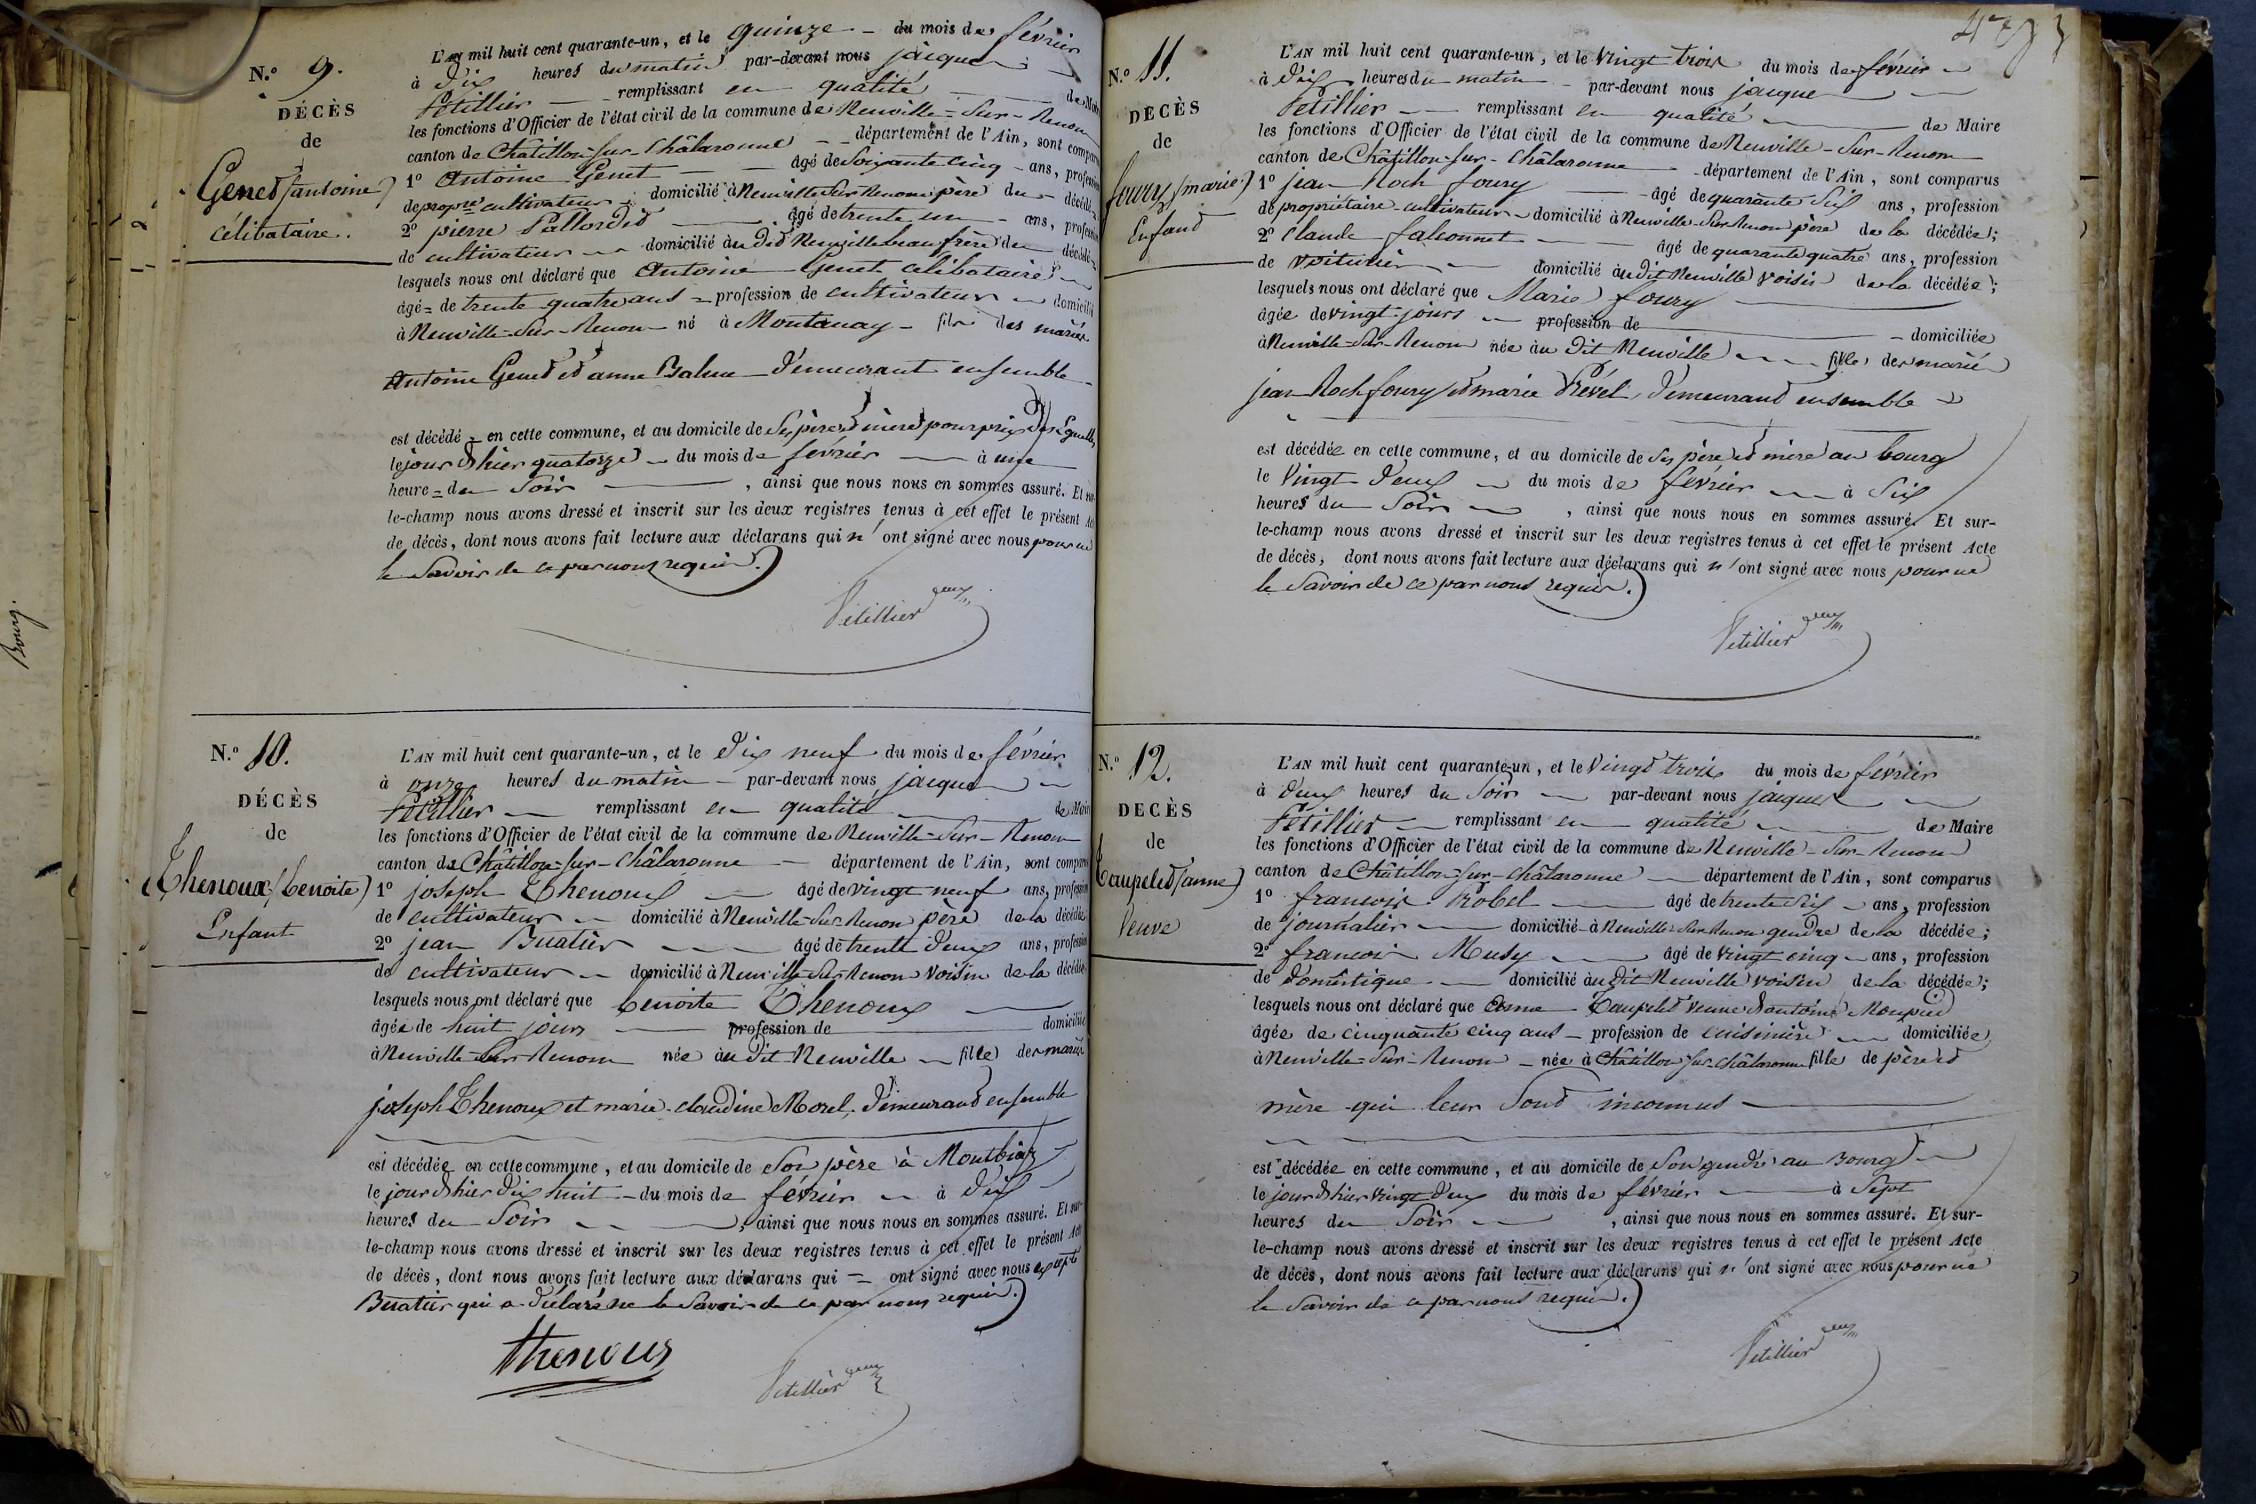 Bourg.
N.º 9.
DÉCÈS
de
Genet (antoine)
célibataire.
L'AN mil huit cent quarante-un, et le quinze du mois de février
à dix heures du matin par-devant nous jacques
Pétillier remplissant en qualité de Maire
les fonctions d'Officier de l'état civil de la commune de Neuville-Sur-Renom
canton de Châtillon-sur-Châlaronne département de l'Ain, sont comparus
1º Antoine Genet âgé de Soixante cinq ans, profession
de propre cultivateur domicilié à Neuville Sur Renom père du décédé
2º pierre Pallordet âgé de trente un ans, profession
de cultivateur domicilié au dit Neuville beau frère du décédé
lesquels nous ont déclaré que Antoine Genet célibataire
âgé de trente quatre ans profession de cultivateur domicilié
à Neuville-Sur-Renom né à Montanay fils des mariés
Antoine Genet et anne Balme demeurant ensemble
est décédé en cette commune, et au domicile de Ses père et mère
le jour d'hier quatorze du mois de février à une
heure du Soir, ainsi que nous nous en sommes assuré. Et sur-
le-champ nous avons dressé et inscrit sur les deux registres tenus à cet effet le présent Acte
de décès, dont nous avons fait lecture aux déclarans qui n'ont signé avec nous pour ne
le Savoir de ce par nous requis.
Pétillier
N.º 10.
DÉCÈS
de
Thenoux (benoite)
Enfant
L'AN mil huit cent quarante-un, et le dix neuf du mois de février
à onze heures du matin par-devant nous jacques
Pétillier remplissant en qualité de Maire
les fonctions d'Officier de l'état civil de la commune de Neuville-Sur-Renom
canton de Châtillon-sur-Châlaronne département de l'Ain, sont comparus
1º joseph Thenoux âgé de vingt neuf ans, profession
de cultivateur domicilié à Neuville-Sur-Renom père de la décédée
2º jean Buatier âgé de trente deux ans, profession
de cultivateur domicilié à Neuville-Sur-Renom voisin de la décédée
lesquels nous ont déclaré que benoite Thenoux
âgée de huit jours profession de domiciliée
à Neuville-Sur-Renom née au dit Neuville fille des mariés
joseph Thenoux et marie claudine Morel, demeurand ensemble
est décédée en cette commune, et au domicile de Son père à Montbiaz
le jour d'hier dix huit du mois de février à dix
heures du Soir, ainsi que nous nous en sommes assuré. Et sur-
le-champ nous avons dressé et inscrit sur les deux registres tenus à cet effet le présent Acte
de décès, dont nous avons fait lecture aux déclarans qui ont signé avec nous excepté
Buatier qui a déclaré ne le Savoir de ce par nous requis.
thenoux
Pétillier
N.º 11.
DÉCÈS
de
foury (marie)
Enfand
L'AN mil huit cent quarante-un, et le vingt trois du mois de février
à dix heures du matin par-devant nous jacques
Pétillier remplissant en qualité de Maire
les fonctions d'Officier de l'état civil de la commune de Neuville-Sur-Renom
canton de Châtillon-sur-Châlaronne département de l'Ain, sont comparus
1º jean Roch foury âgé de quarante Six ans, profession
de propriétaire-cultivateur domicilié à Neuville-Sur-Renom père de la décédée;
2º Claude falconnet âgé de quarante quatre ans, profession
de voiturier domicilié au dit Neuville voisin de la décédée;
lesquels nous ont déclaré que Marie foury
âgée de vingt jours profession de domiciliée
à Neuville-Sur-Renom née au dit Neuville fille des mariés
jean Roch foury et marie Prével, demeurand ensemble
est décédée en cette commune, et au domicile de Ses père et mère au bourg
le vingt deux du mois de février à Six
heures du Soir, ainsi que nous nous en sommes assuré. Et sur-
le-champ nous avons dressé et inscrit sur les deux registres tenus à cet effet le présent Acte
de décès, dont nous avons fait lecture aux déclarans qui n'ont signé avec nous pour ne
le Savoir de ce par nous requis.
Pétillier
N.º 12.
DÉCÈS
de
Taupelet (anne)
Veuve
L'AN mil huit cent quarante-un, et le vingt trois du mois de février
à deux heures du Soir par-devant nous jacques
Pétillier remplissant en qualité de Maire
les fonctions d'Officier de l'état civil de la commune de Neuville-Sur-Renom
canton de Châtillon-sur-Châlaronne département de l'Ain, sont comparus
1º francois Probel âgé de trente Six ans, profession
de journalier domicilié à Neuville-Sur-Renom gendre de la décédée;
2º francois Musy âgé de vingt cinq ans, profession
de domestique domicilié au dit Neuville voisin de la décédée;
lesquels nous ont déclaré que anne Taupelet veuve d'antoine
âgée de cinquante cinq ans profession de cuisinière domiciliée
à Neuville-Sur-Renom née à Châtillon-sur-Châlaronne fille de père et
mère qui leur Sont inconnus
est décédée en cette commune, et au domicile de Son gendre au Bourg
le jour d'hier vingt deux du mois de février à Sept
heures du Soir, ainsi que nous nous en sommes assuré. Et sur-
le-champ nous avons dressé et inscrit sur les deux registres tenus à cet effet le présent Acte
de décès, dont nous avons fait lecture aux déclarans qui n'ont signé avec nous pour ne
le Savoir de ce par nous requis.
Pétillier